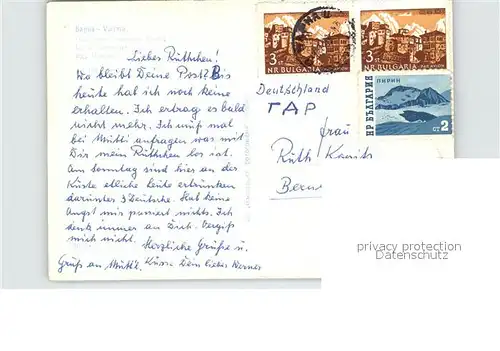 Варна - Varna
Liebes Rüthchen!
Wo bleibt Deine Post? Bis
heute hab ich noch keine
erhalten. Ich ertrag es bald
nicht mehr. Ich muß mal
bei Mutti anfragen was mit
Dir mein Rüthchen los ist.
Am Sonntag sind hier an der
Küste etliche Leute ertrunken
darunter 3 Deutsche. Hab keine
Angst mir passiert nichts. Ich
denk immer an Dich. Vergiß
mich nicht. Herzliche Grüße u.
Gruß an Mutti. Küsse Dein lieber Werner
3 ст
NR BULGARIA
3 ст
NR BULGARIA
Deutschland
ГДР
ПИРИН
НР БЪЛГАРИЯ
СТ 2
Frau
Ruth
privacy protection
Datenschutz